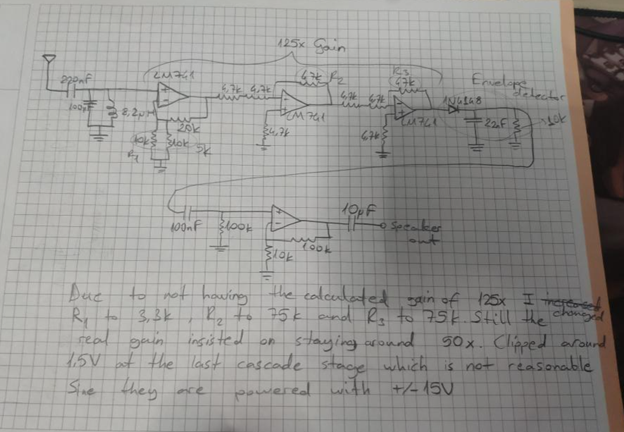 125x Gain
LM741
220nF
100pF
8,2μH
20k
10k
10k
5k
R1
4,7k
4,7k
47k
R2
LM741
4,7k
4,7k
4,7k
R3
47k
LM741
47k
1N4148
Envelope
detector
22nF
10k
100nF
100k
10k
100k
10μF
Speaker
out
Due to not having the calculated gain of 125x I changed
R1 to 3,3k, R2 to 75k and R3 to 75k. Still the
real gain insisted on staying around 50x. Clipped around
1,5V at the last cascade stage which is not reasonable
Sine they are powered with +/-15V